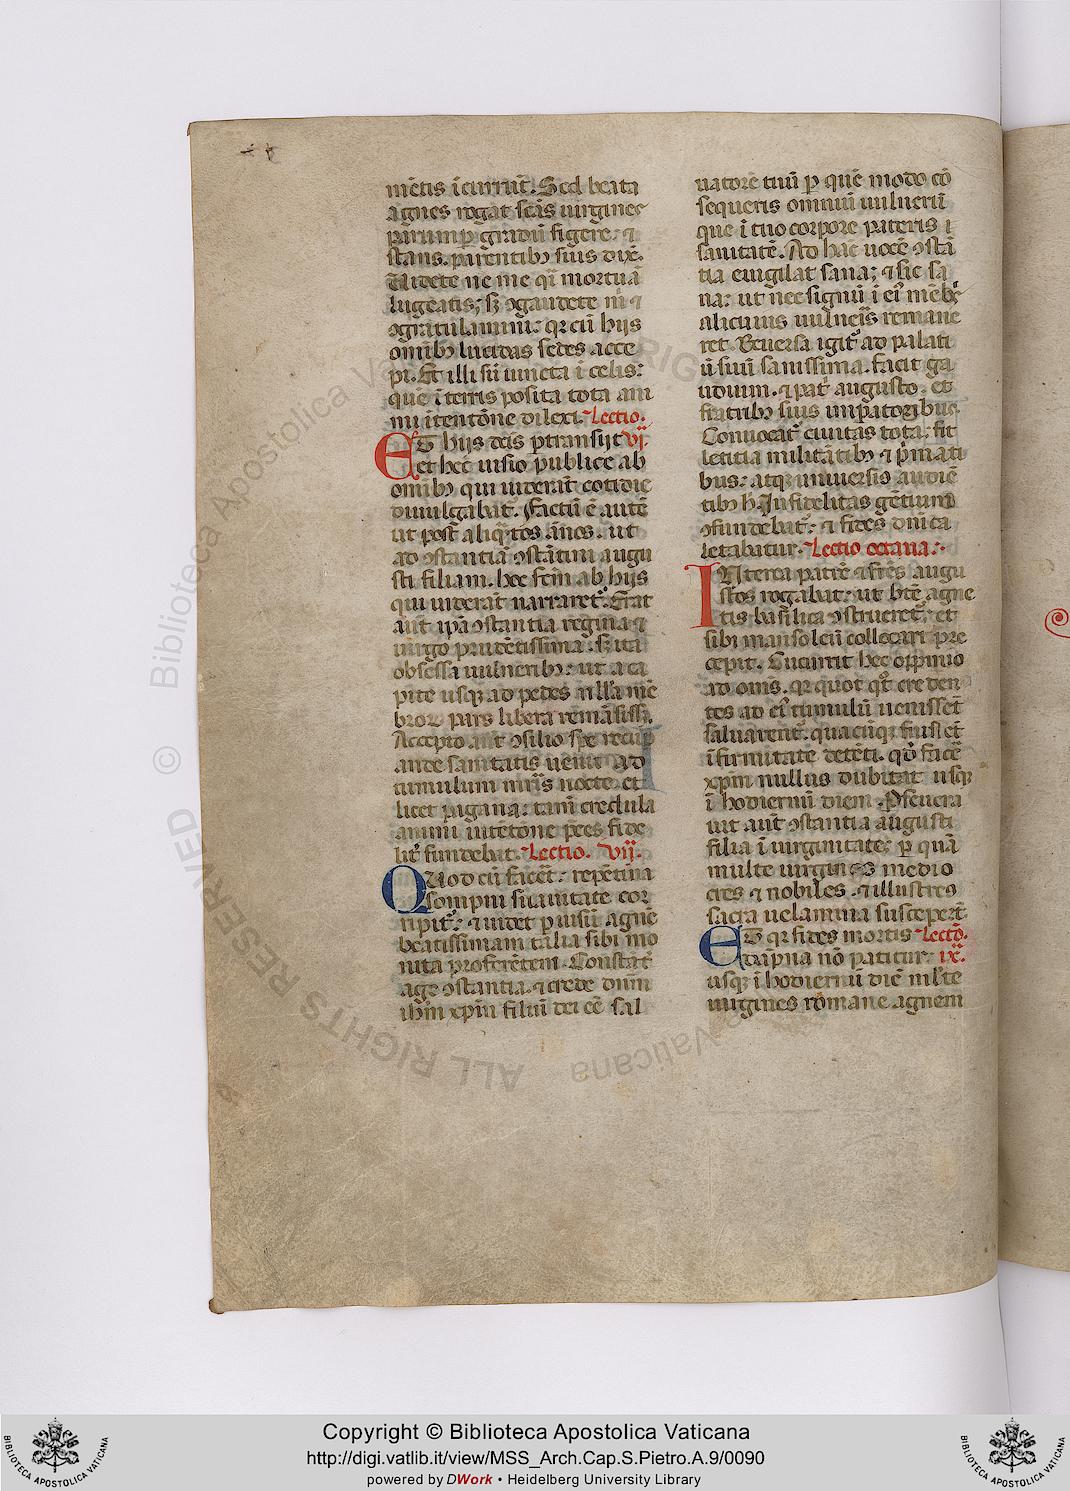 mētis īcurrūt. Sed beata
agnes rogat scās uirgines
parump̄ gradū figere. ⁊
stans. parentibꝫ suis dix̄.
Uidete ne me q̄i mortuā
lugeatis; sꝫ ꝯgaudete m̄ ⁊
ꝯgratulamini: qꝛ cū hijs
omībꝫ lucidas sedes acce
pi. Et illi sū iuncta ī celis:
quē ī terris posita tota ani
mi ītentōne dilexi. Lectio.
Et hijs dc̄is ꝑtransijt vi.
et hec uisio publice ab
omībꝫ qui uiderāt cotidie
diuulgabat᷑. Factū ē autē
ut post aliq̄tos ānos. ut
ad ꝯstantiā ꝯstātini augu
sti filiam. hec fcm̄ ab hijs
qui uiderāt narraret᷑. Erat
aut̄ ip̄a ꝯstantia regina ⁊
uirgo prudētissima. sꝫ ita
obsessa uulneribꝫ: ut a ca
pite usqꝫ ad pedes nlla mē
broꝝ pars libera remāsiss̄.
Accepto aut̄ ꝯsilio spe recup
ande sanitatis uenit ad
tumulum mr̄is nocte. et
licet pagana: tam̄ credula
animi ītētōne p̄ces fide
lit᷑ fundebat. Lectio. vij.
Quod cū facēt: repētina
sompni suauitate cor
ripit᷑: ⁊ uidet ꝑ uisū agnē
beatissimam talia sibi mo
nita proferētem. Constāt᷑
age ꝯstantia. ⁊ crede dn̄m
ih̄m xp̄m filiū dei eē sal
uatorē tuū ꝑ quē modo cō
sequeris omniū uulnerū
que ī tuo corpore pateris ī
sanitatē. Ad hāc uocē ꝯstā
tia euigilat sana; ⁊ sic sa
na: ut nec signū ī ei᷑ mēbꝝ
alicuius uulneris remane
ret. Reuersa igit᷑ ad palati
ū suū sanissima. facit ga
udium. ⁊ pat̄ augusto. et
fratribꝫ suis impatoribus.
Conuocat᷑ ciuitas tota. fit
letitia militātibꝫ ⁊ p̄mati
bus: atqꝫ uniuersis audiē
tibꝫ h̄. Infidelitas gētium
ꝯfundebat᷑: ⁊ fides dn̄ica
letabatur. Lectio octaua.
INterea patrē ⁊ fr̄es augu
stos rogabat: ut bt̄e agne
tis basilica ꝯstrueret᷑: et
sibi mausoleū collocari p̄e
cepit. Cucurrit hec oppinio
ad om̄s. qꝛ quot qt̄ creden
tes ad ei᷑ tumulū uenissēt
saluarent᷑. quacūqꝫ fuissēt
īfirmitate detēti. qd̄ facē
xp̄m nullus dubitat usqꝫ
ī hodiernū diem. Pseuera
uit aut̄ ꝯstantia augusti
filia ī uirginitate: ꝑ quā
multe uirgines medio
cres ⁊ nobiles. ⁊ illustres
sacra uelamina susceperūt.
Et qꝛ fides mortis Lectō.
dāpna nō patitur: ix.
usqꝫ ī hodiernū diē ml̄te
uirgines romane agnem
Copyright © Biblioteca Apostolica Vaticana
http://digi.vatlib.it/view/MSS_Arch.Cap.S.Pietro.A.9/0090
powered by DWork • Heidelberg University Library